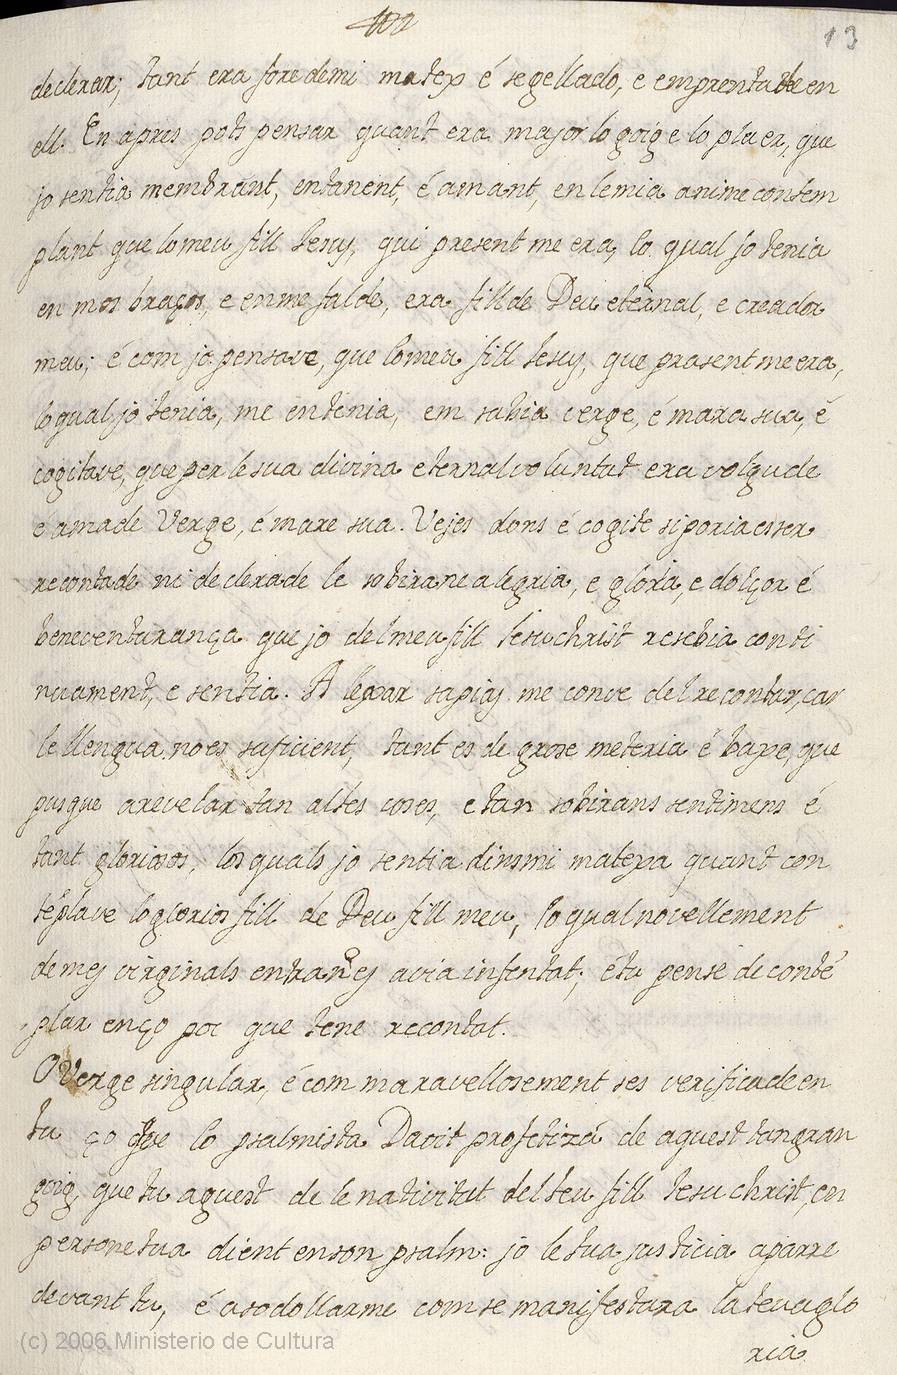 13
declerar; tant era fore demi matex é segellado, e emprentade en
ell. En apres pots pensar quant era major lo goig e lo plaer, que
jo sentia membrant, entanent, é amant, en lemia anime contem
plant que lo meu fill Jesus, qui present me era, lo qual jo tenia
en mos braços, e en me falde, era fill de Deu eternal, e creador
meu; é com jo pensave, que lo meu fill Jesus, que prasent me era,
lo qual jo tenia, me entenia, em sabia verge, é mara sua, é
cogitave, que per le sua divina eternal voluntat era volgude
é amade Verge, é mare sua. Vejes dons é cogite si poria esser
recontade ni declerade le sobirane alegria, e gloria, e dolçor é
beneventurança que jo del meu fill Jesuchrist resebia conti
nuament, e sentia. A lexar sapias me conve del recontar, car
le llengua no es suficient, tant es de grose meteria é baxe, que
pusque arevelar tan altes coses, e tan sobirans sentimens é
tant gloriosos, los quals jo sentia dins mi matexa quant con
téplave lo glorios fill de Deu fill meu, lo qual novellement
de mes virginals entrañes avia infentat; é tu pense de conté
plar en ço poc que tene recontat.
O Verge singular, é com maravellosement ses verificade en
tu ço que lo psalmista Davit profetizá de aquest tan gran
goig, que tu aguest de le nativitat del teu fill Jesu christ, en
persone tua dient en son psalm: jo le tua justicia aparre
devant tu, é asadollarme com se manifestara la teva glo
ria
(c) 2006 Ministerio de Cultura